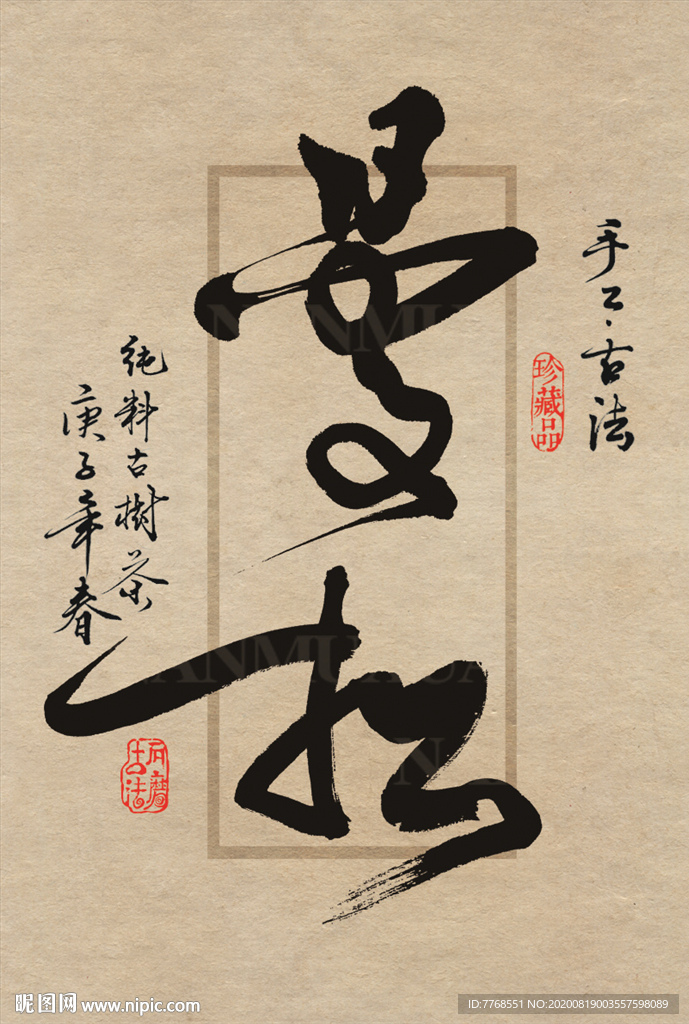 曼松
手工·古法
珍藏品
純料古樹茶
庚子年春
石磨
古法
昵图网 www.nipic.com
ID:7768551 NO:20200819003557598089